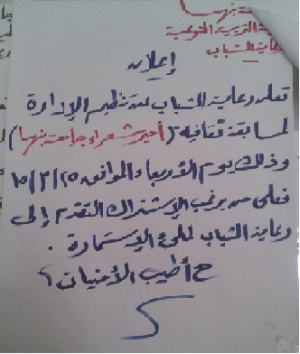 بنها
التربية النوعية
رعاية الشباب
إعلان
تعلن رعاية الشباب عن تنظيم الإدارة
لمسابقة ثقافية (أمير شعراء جامعة بنها)
وذلك يوم الأربعاء الموافق ٢٥/٣/١٥
فعلى من يرغب الإشتراك التقدم إلى
رعاية الشباب لملئ الإستمارة .
مع أطيب الأمنيات